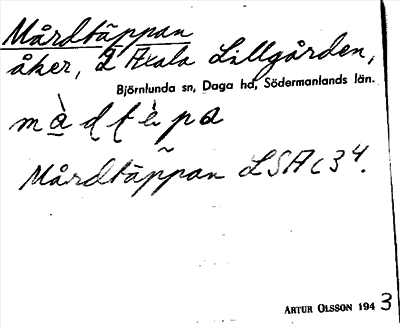 Mårdtäppan
åker, 2 Axala Lillgården,
Björnlunda sn, Daga hd, Södermanlands län.
Mårdtäppan LSA C34.
ARTUR OLSSON 1943